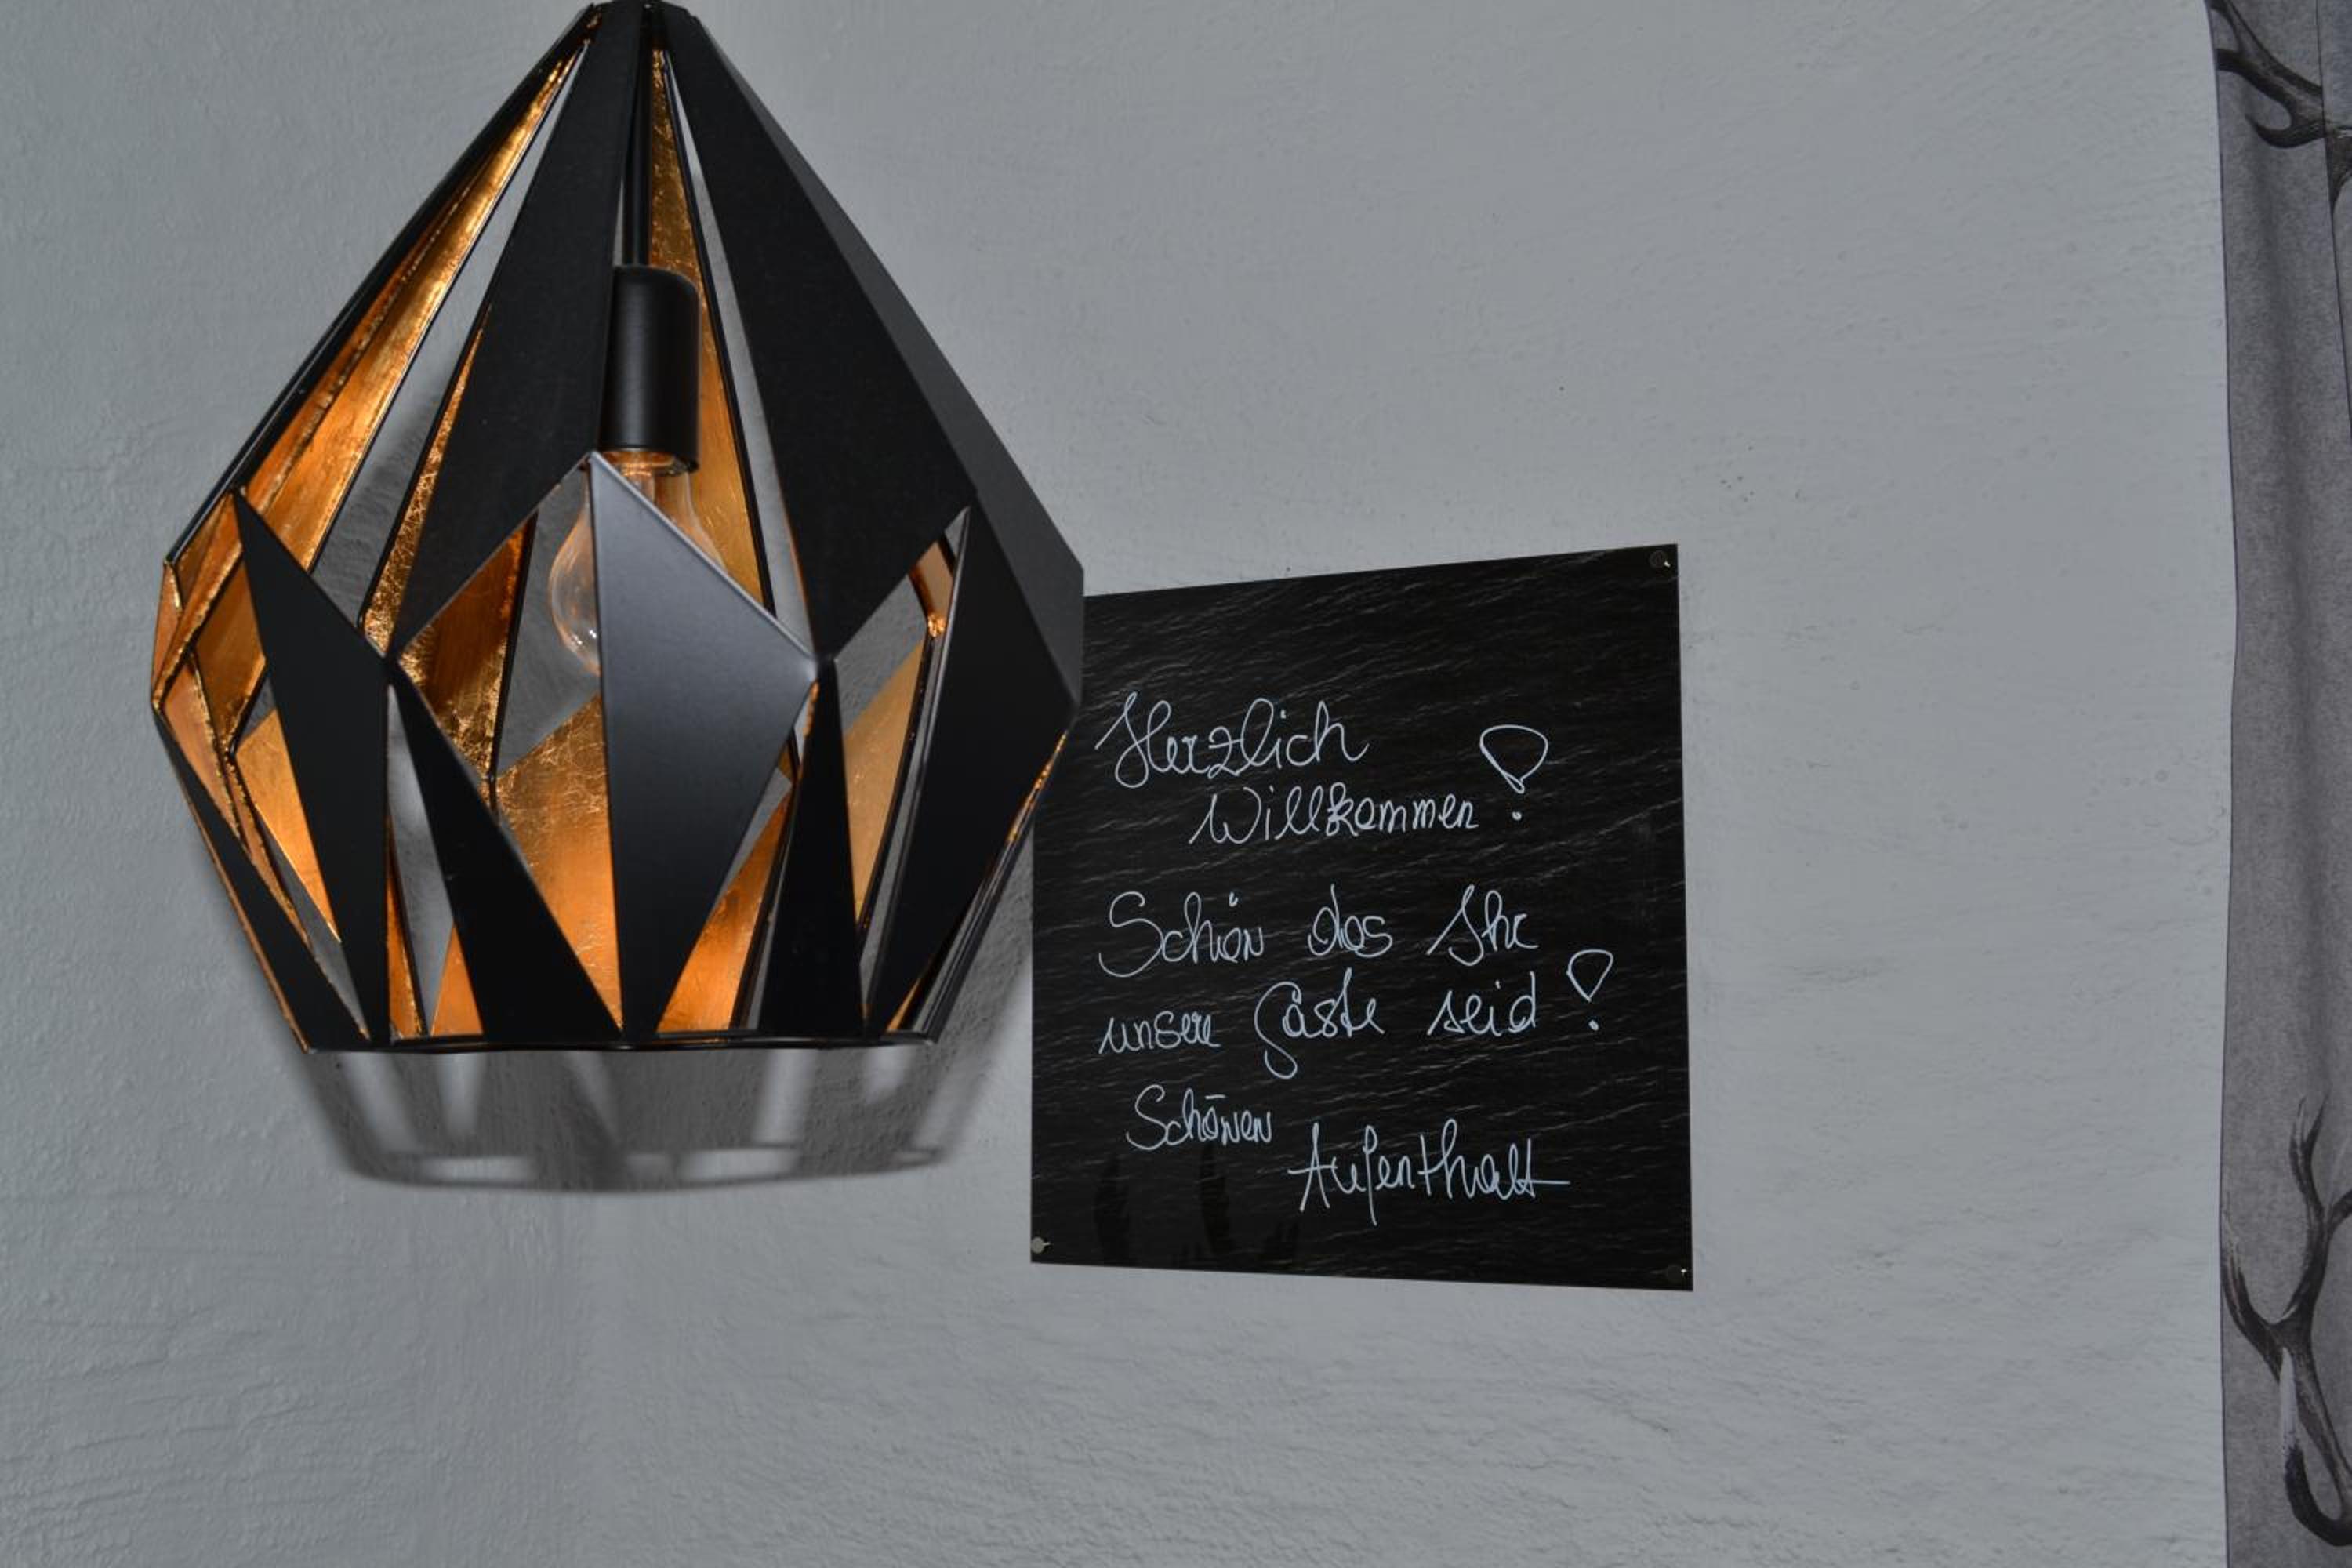 Herzlich
Willkommen!
Schön das Ihr
unsere Gäste seid!
Schönen
Aufenthalt